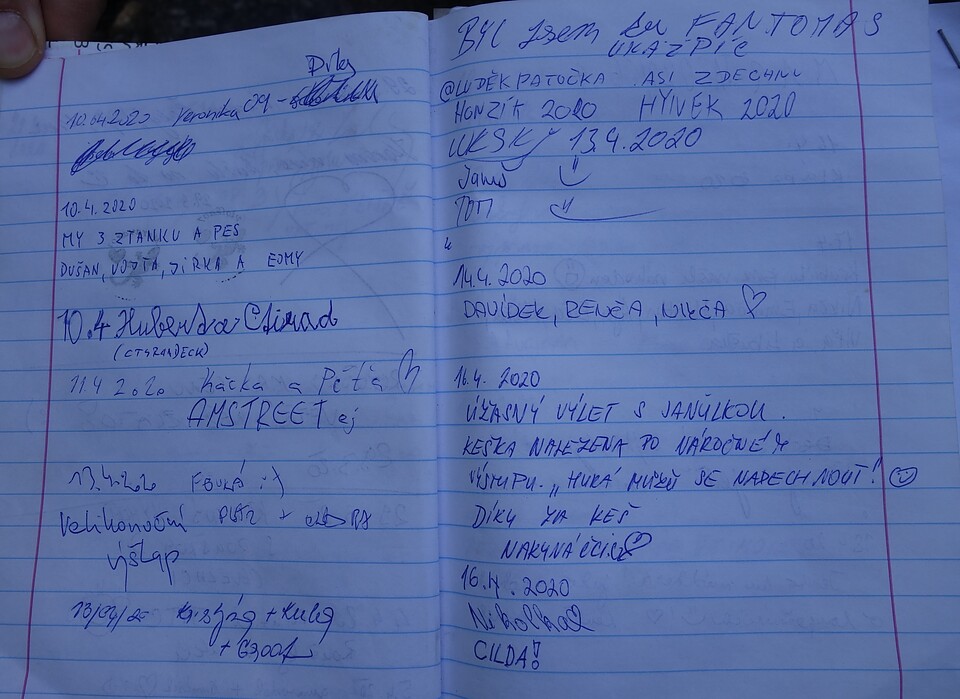 Díky
10.04.2020 Veronika 09 -
10.4.2020
MY 3 ZTANKU A PES
DUŠAN, VOJTA, JIRKA A EOMY
10.4 Huberta Ctirad
(CTYRANDECK)
11.4 2020 Káčka a Péťa ♡
AMSTREET ej
13.4.2020 FOUKÁ :-)
Velikonoční
výšlap
13/04/20 + Kuba
+
BYL jsem tu FANTOMAS
UKAZPIC
@LUDĚKPATOČKA ASI ZDECHNU
HONZÍK 2020 HYNEK 2020
13.4.2020
TOM
14.4.2020
DAVÍDEK, RENČA, NIKČA ♡
16.4. 2020
ÚŽASNÝ VÝLET S JANULKOU.
KEŠKA NALEZENA PO NÁROČNÉM
VÝSTUPU. „HURÁ MŮŽU SE NADECHNOUT! ☺
DÍKY ZA KEŠ
16.4. 2020
CILDA!